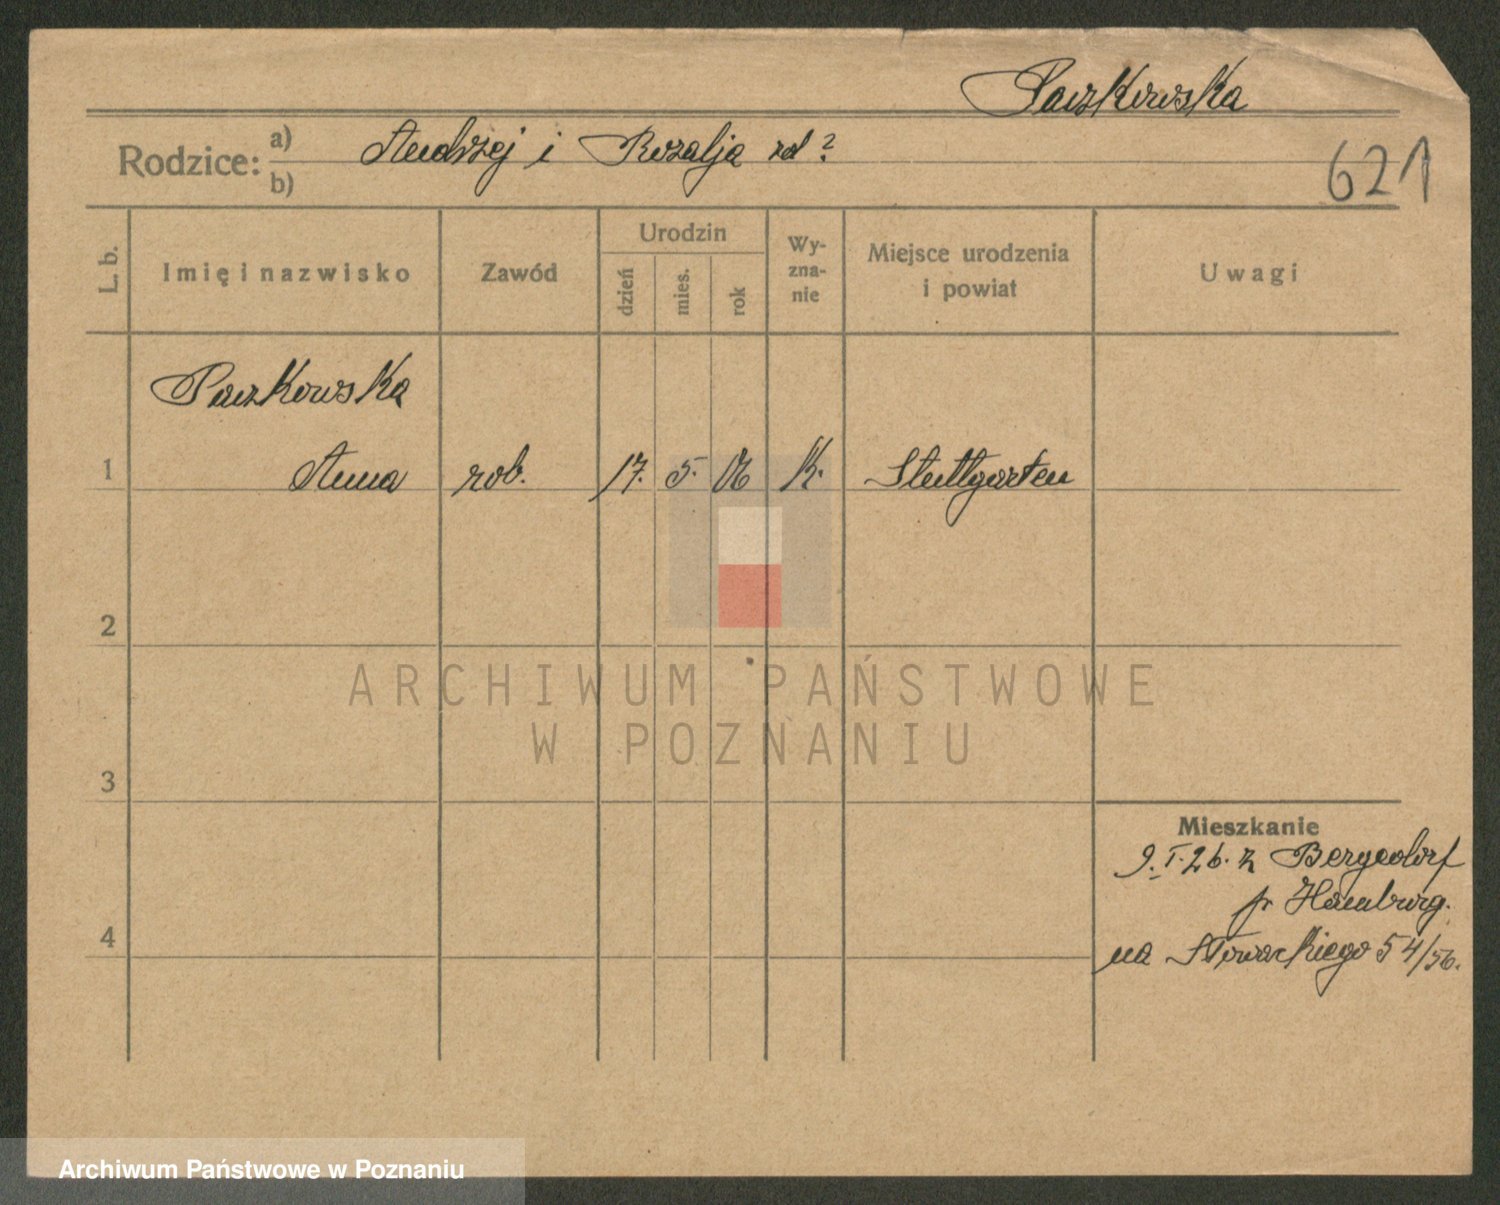 Paczkowska
Rodzice: a) Andrzej i Rozalja zd?
b)
621
L. b. Imię i nazwisko Zawód Urodzin dzień mies. rok Wyznanie Miejsce urodzenia i powiat Uwagi
Paczkowska
1 Anna rob. 17. 5. 06 K. Stuttgarten
2
ARCHIWUM PAŃSTWOWE
W POZNANIU
3
Mieszkanie
9.I.26. z Bergedorf
pr Hamburg.
4
na Słowackiego 54/56.
Archiwum Państwowe w Poznaniu